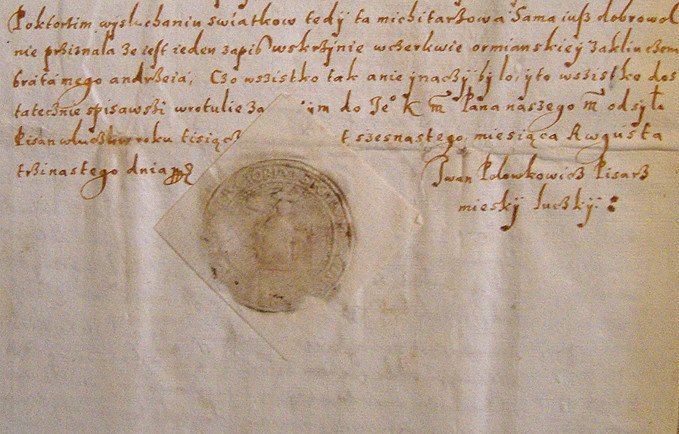 Poktorim wysluchaniu swiatkow tedy ta michitarzowa Sama iusz dobrowol
nie przisnala ze iest ieden zapis wskrzynie wczerkwie ormianskiey za kliuczem
brata mego andrzeia, Czo wszistko tak a nie ynaczy bylo, y to wssistko dos
tatecznie spisawszi wrotulie za im do Je° K m Pana naszego m odsylo
Pisan wluczku roku tisiącz t szesnastego, miesiąca Awgusta
trzinastego dnia
Iwan Polowkowicz Pisarz
mieskij luczkij